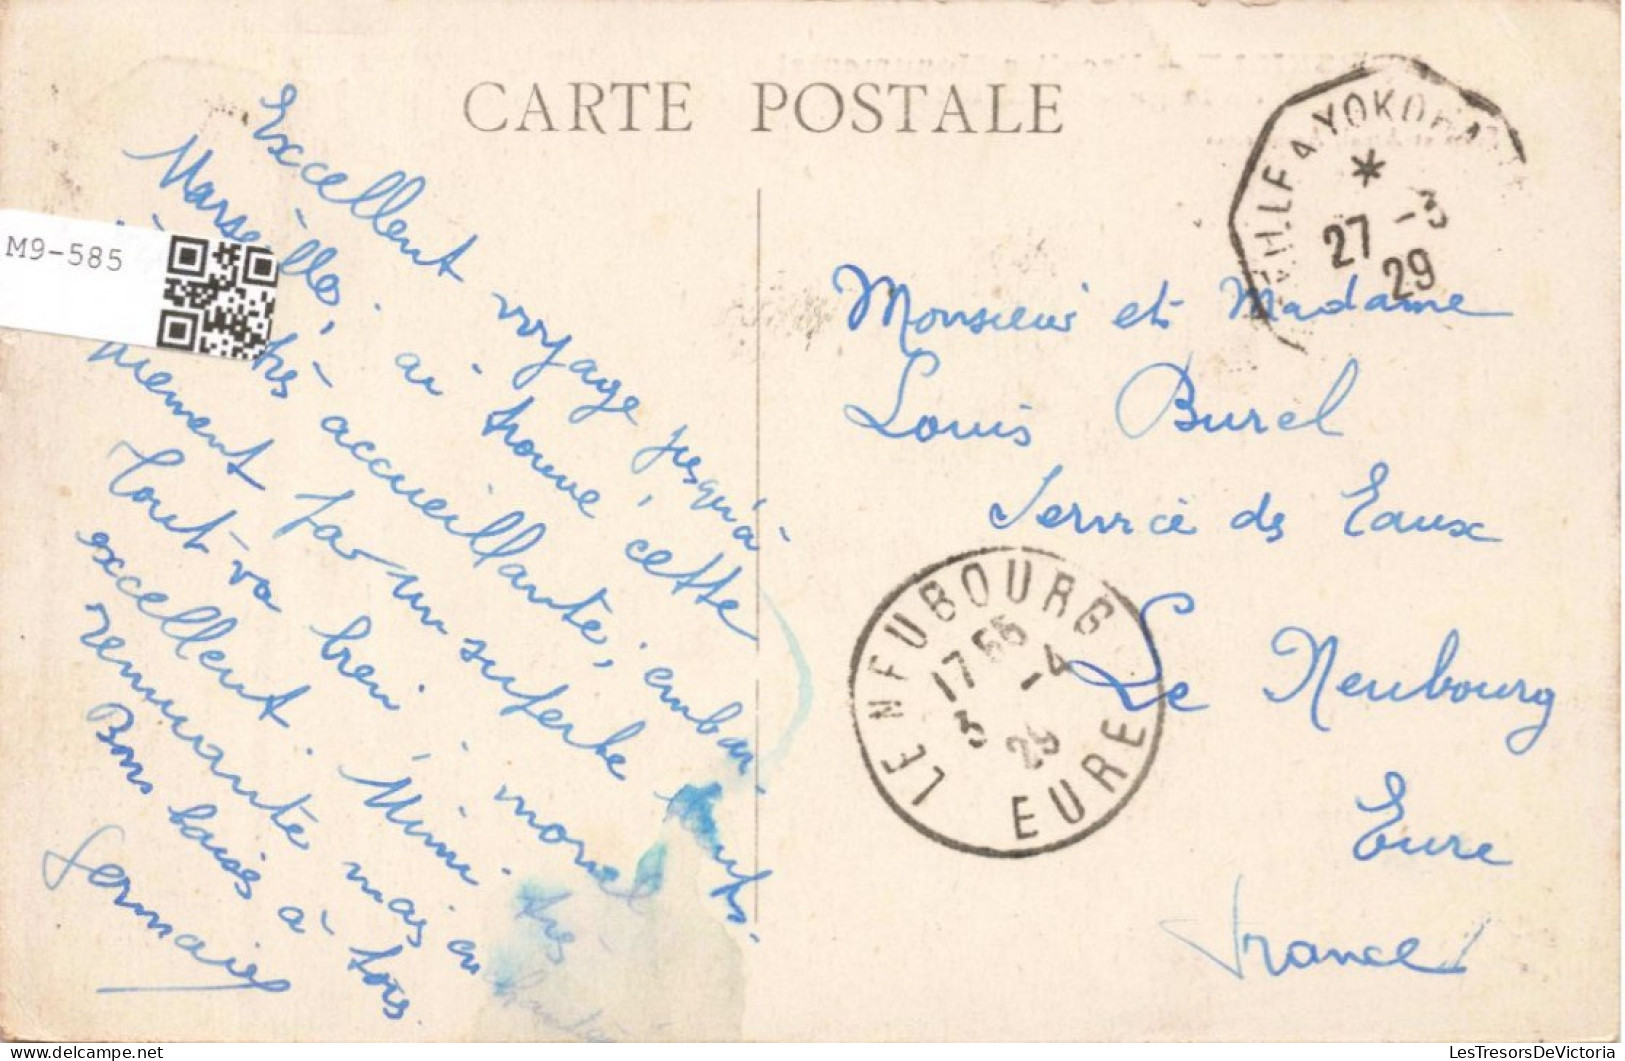 CARTE POSTALE
Excellent voyage jusqu'à
Marseille, ai trouvé, cette
très accueillante, embar-
quement par un superbe temps.
Tout va bien, moral très
excellent. Mimi
remuante mais en
Bons baisers à tous
Germaine
M9-585
LLE A YOKOHAMA
*
27 -3
29
Monsieur et Madame
Louis Burel
Service des Eaux
Le Neubourg
Eure
France
LE NEUBOURG
17 55
5 -4
29
EURE
LesTresorsDeVictoria